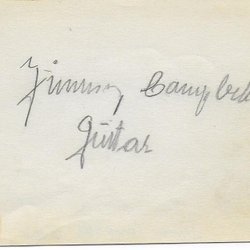 Jimmy Campbell
Guitar